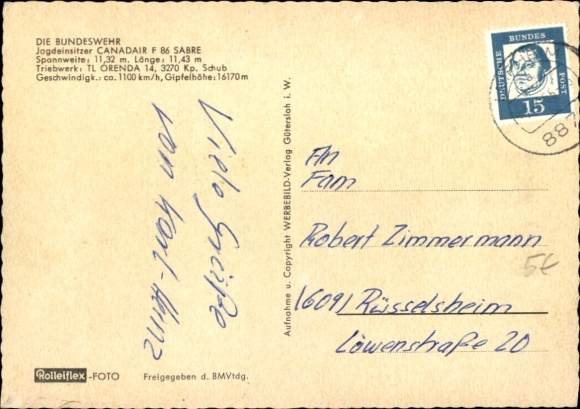 DIE BUNDESWEHR
Jagdeinsitzer CANADAIR F 86 SABRE
Spannweite: 11,32 m, Länge: 11,43 m
Triebwerk: TL ORENDA 14, 3270 Kp. Schub
Geschwindigk.: ca. 1100 km/h, Gipfelhöhe: 16170 m
Viele Grüße
von Karl-Heinz
Rolleiflex-FOTO
Freigegeben d. BMVtdg.
Aufnahme u. Copyright WERBEBILD-Verlag Gütersloh i. W.
DEUTSCHE
BUNDES
POST
15
882
An
Fam
Robert Zimmermann
5€
(6091) Rüsselsheim
Löwenstraße 20